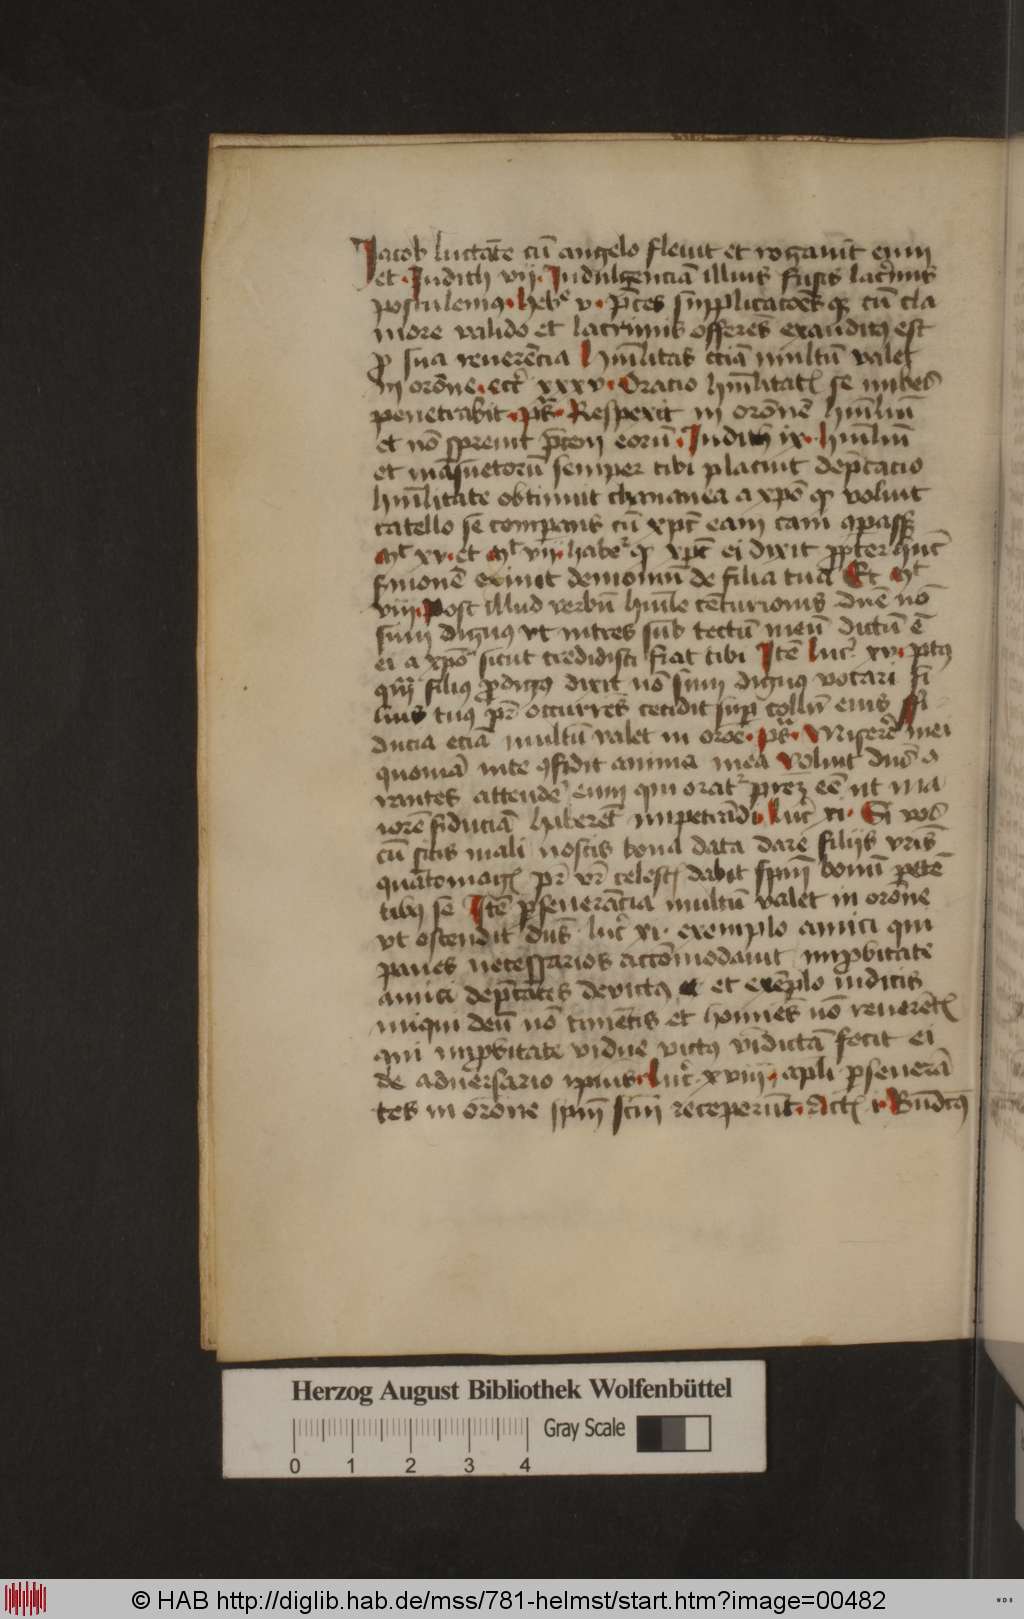 Jacob luctāte cū angelo flevit et rogavit eum
et Judith vij Indulgenciā illius fusis lacrimis
postulemus hebr v p̄ces supplicacōes q cū cla
more valido et lacrimis offerēs exauditus est
p sua reverēcia hūilitas eciā multū valet
in orōne ecc xxxv Oracio hūilitatꝭ se nubes
penetrabit ps Respexit in orōnē hūiliū
et nō sprevit p̄cem eorū Judith ix hūiliū
et māsuetorū semper tibi placuit dep̄cacio
hūilitate obtinuit chananea a xpō q voluit
catello se comparās cū xpc eam cam
mt xv et habetr q xpc ei dixit ppter hūc
smonē exivit demoniū de filia tua Et mt
viij Post illud verbū hūile cēturionis dn̄e nō
sum dignus vt intres sub tectū meū dictū ē
ei a xpō sicut credidisti fiat tibi Itē luc xv
filius pdigus dixit nō sum dignus vocari fi
lius tuus pr̄ occurrēs cecidit sup collū eius fi
ducia eciā multū valet in orōe ps Miserē mei
quoniā in te 9fidit anima mea Voluit dn̄s
attendē eum qui orat pr̄em eē ut ma
iorē fiduciā haberet impetrādi luc xi Si vos
cū sitis mali nostis bona data dare filijs vr̄is
quātomagꝭ pr̄ vr̄ celestꝭ dabit spm̄ bonū petē
tibus se Itē pseverācia multū valet in orōne
vt ostendit dn̄s luc xi exemplo amici qui
panes necessarios accōmodavit impbitate
amici dep̄cātes devictus et exēplo iudicis
iniqui deū nō timētis et homīes nō reverētꝭ
qui impbitate vidue victus vīdictā fecit ei
de adversario ipius luc xviij apli pseverā
tes in orōne spm̄ scm̄ receperūt Actꝭ i